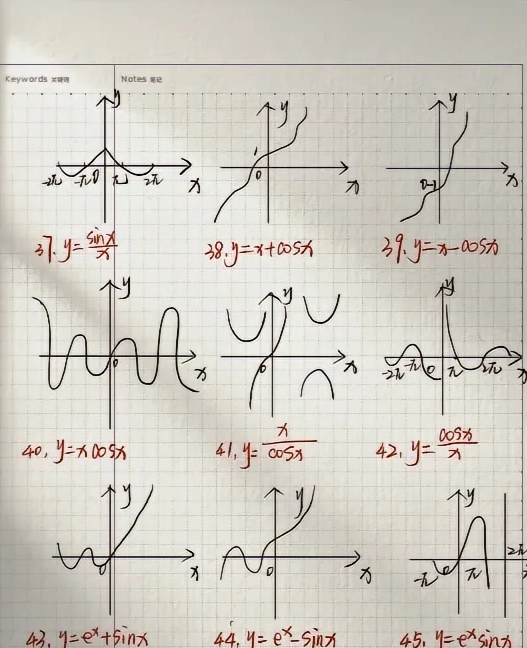 Keywords 关键词
Notes 笔记
y
-2π -π 0 π 2π x
37. y = sinx/x
y
1
0
x
38. y=x+cosx
y
0 -1
x
39. y=x-cosx
y
0
x
40. y=xcosx
y
0
x
41. y= x/cosx
y
-2π -π 0 π 2π x
42. y= cosx/x
y
0
x
43. y=eˣ+sinx
y
0
x
44. y=eˣ-sinx
y
-π 0 π 2π
45. y=eˣsinx